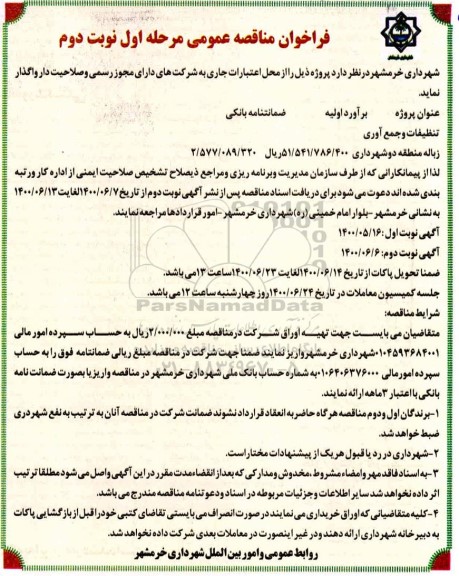 فراخوان مناقصه عمومی مرحله اول نوبت دوم
شهرداری خرمشهر در نظر دارد پروژه ذیل را از محل اعتبارات جاری به شرکت های دارای مجوز رسمی و صلاحیت دار واگذار
نماید.
عنوان پروژه برآورد اولیه ضمانتنامه بانکی
تنظیفات و جمع آوری
زباله منطقه دو شهرداری ۵۱/۵۴۱/۷۸۶/۴۰۰ریال ۲/۵۷۷/۰۸۹/۳۲۰
لذا از پیمانکارانی که از طرف سازمان مدیریت وبرنامه ریزی و مراجع ذیصلاح تشخیص صلاحیت ایمنی از اداره کار و رتبه
بندی شده اند دعوت می شود برای دریافت اسناد مناقصه پس از نشر آگهی نوبت دوم از تاریخ ۱۴۰۰/۰۶/۷لغایت ۱۴۰۰/۰۶/۱۳
به نشانی خرمشهر -بلوار امام خمینی (ره) شهرداری خرمشهر -امور قراردادها مراجعه نمایند.
آگهی نوبت اول: ۱۴۰۰/۰۵/۱۶
آگهی نوبت دوم: ۱۴۰۰/۰۶/۶
ضمنا تحویل پاکات از تاریخ ۱۴۰۰/۰۶/۱۴لغایت ۱۴۰۰/۰۶/۲۳ساعت ۱۳می باشد.
جلسه کمیسیون معاملات در تاریخ ۱۴۰۰/۰۶/۲۴روز چهارشنبه ساعت ۱۲می باشد.
شرایط مناقصه:
متقاضیان می بایست جهت تهیه اوراق شرکت در مناقصه مبلغ ۲/۰۰۰/۰۰۰ریال به حساب سپرده امور مالی
۰۱۰۴۵۹۳۶۸۴۰۰۱شهرداری خرمشهر واریز نمایند ضمنا جهت شرکت در مناقصه مبلغ ریالی ضمانتنامه فوق را به حساب
سپرده امور مالی ۰۱۰۶۴۰۶۳۷۶۰۰۰به شماره حساب بانک ملی شهرداری خرمشهر در مناقصه واریز یا بصورت ضمانت نامه
بانکی با اعتبار ۳ماهه ارائه نمایند.
۱-برندگان اول ودوم مناقصه هرگاه حاضر به انعقاد قرارداد نشوند ضمانت شرکت در مناقصه آنان به ترتیب به نفع شهرداری
ضبط خواهد شد.
۲-شهرداری در رد یا قبول هریک از پیشنهادات مختار است.
۳-به اسناد فاقد مهر وامضاء مشروط، مخدوش و مدارکی که بعد از انقضاء مدت مقرر در این آگهی واصل می شود مطلقا ترتیب
اثر داده نخواهد شد سایر اطلاعات و جزئیات مربوطه در اسناد ودعوتنامه مناقصه مندرج می باشد.
۴-کلیه متقاضیانی که اوراق خریداری می نمایند در صورت انصراف می بایستی تقاضای کتبی خود را قبل از بازگشایی پاکات
به دبیرخانه شهرداری ارائه دهند ودر غیر اینصورت در معاملات بعدی شرکت داده نخواهد شد.
روابط عمومی و امور بین الملل شهرداری خرمشهر
ParsNamadData